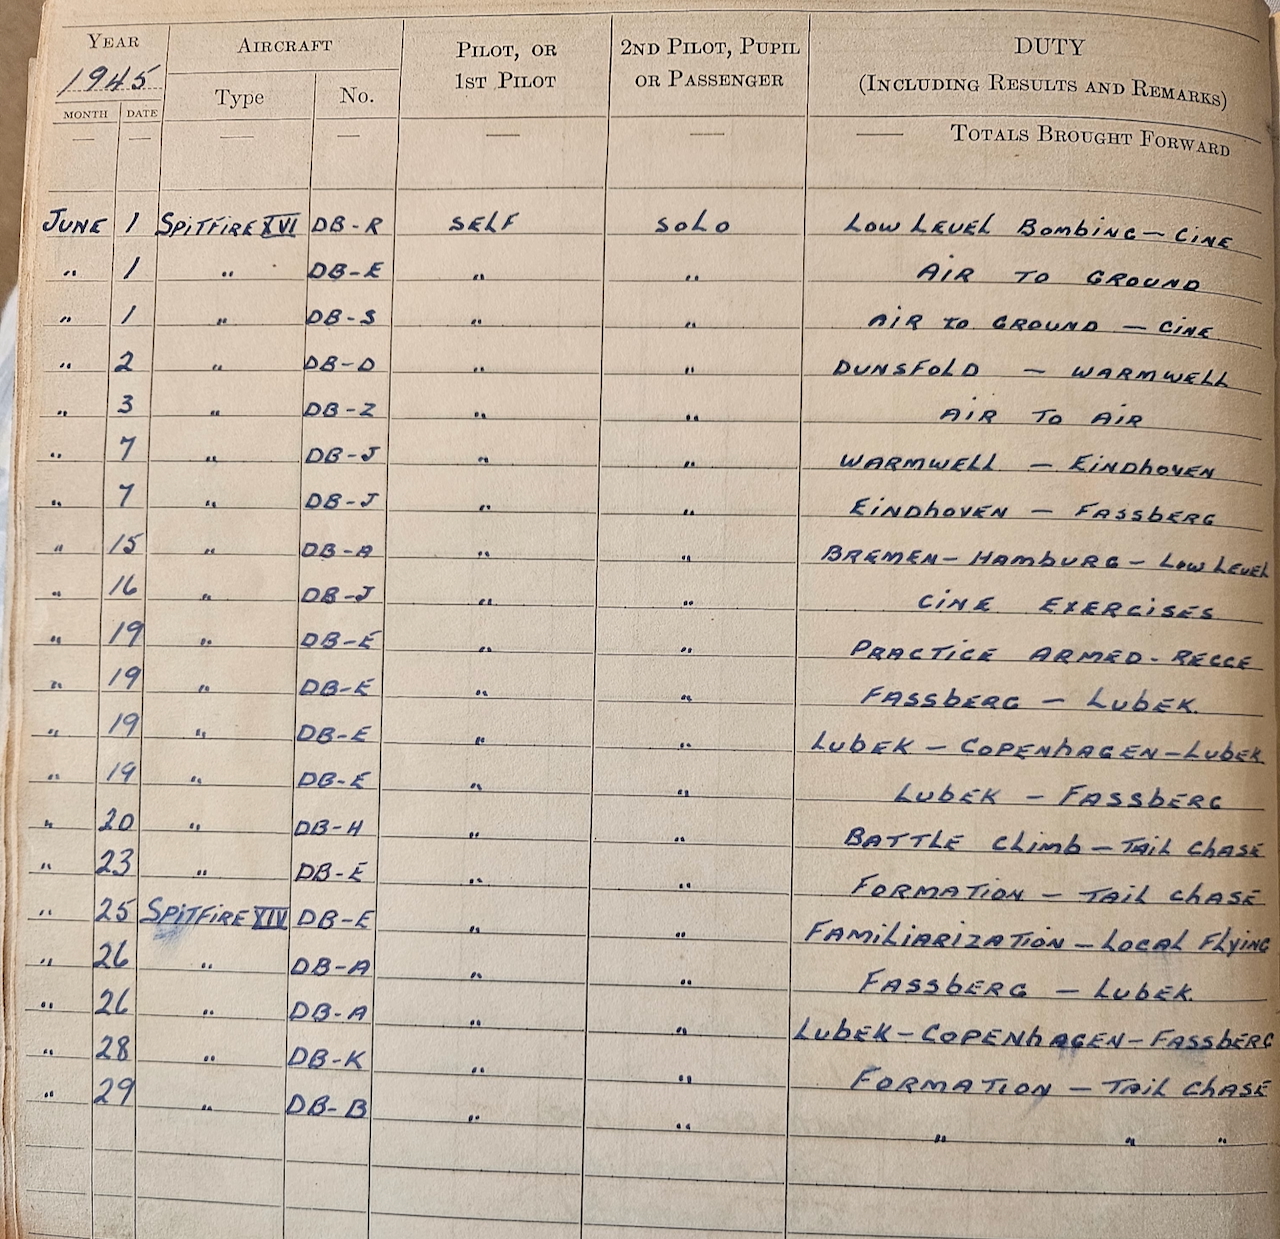 YEAR AIRCRAFT PILOT, OR 2ND PILOT, PUPIL DUTY
1945 Type No. 1ST PILOT OR PASSENGER (INCLUDING RESULTS AND REMARKS)
MONTH DATE
— — — — — — — TOTALS BROUGHT FORWARD
JUNE 1 SPITFIRE XVI DB-R SELF SOLO LOW LEVEL BOMBING — CINE
" 1 " DB-E " " AIR TO GROUND
" 1 " DB-S " " AIR TO GROUND — CINE
" 2 " DB-D " " DUNSFOLD — WARMWELL
" 3 " DB-Z " " AIR TO AIR
" 7 " DB-J " " WARMWELL — EINDHOVEN
" 7 " DB-J " " EINDHOVEN — FASSBERG
" 15 " DB-A " " BREMEN - HAMBURG - LOW LEVEL
" 16 " DB-J " " CINE EXERCISES
" 19 " DB-E " " PRACTICE ARMED-RECCE
" 19 " DB-E " " FASSBERG — LUBEK.
" 19 " DB-E " " LUBEK — COPENHAGEN — LUBEK
" 19 " DB-E " " LUBEK — FASSBERG
" 20 " DB-H " " BATTLE CLIMB — TAIL CHASE
" 23 " DB-E " " FORMATION — TAIL CHASE
" 25 SPITFIRE XIV DB-E " " FAMILIARIZATION — LOCAL FLYING
" 26 " DB-A " " FASSBERG — LUBEK.
" 26 " DB-A " " LUBEK — COPENHAGEN — FASSBERG
" 28 " DB-K " " FORMATION — TAIL CHASE
" 29 " DB-B " " " " "